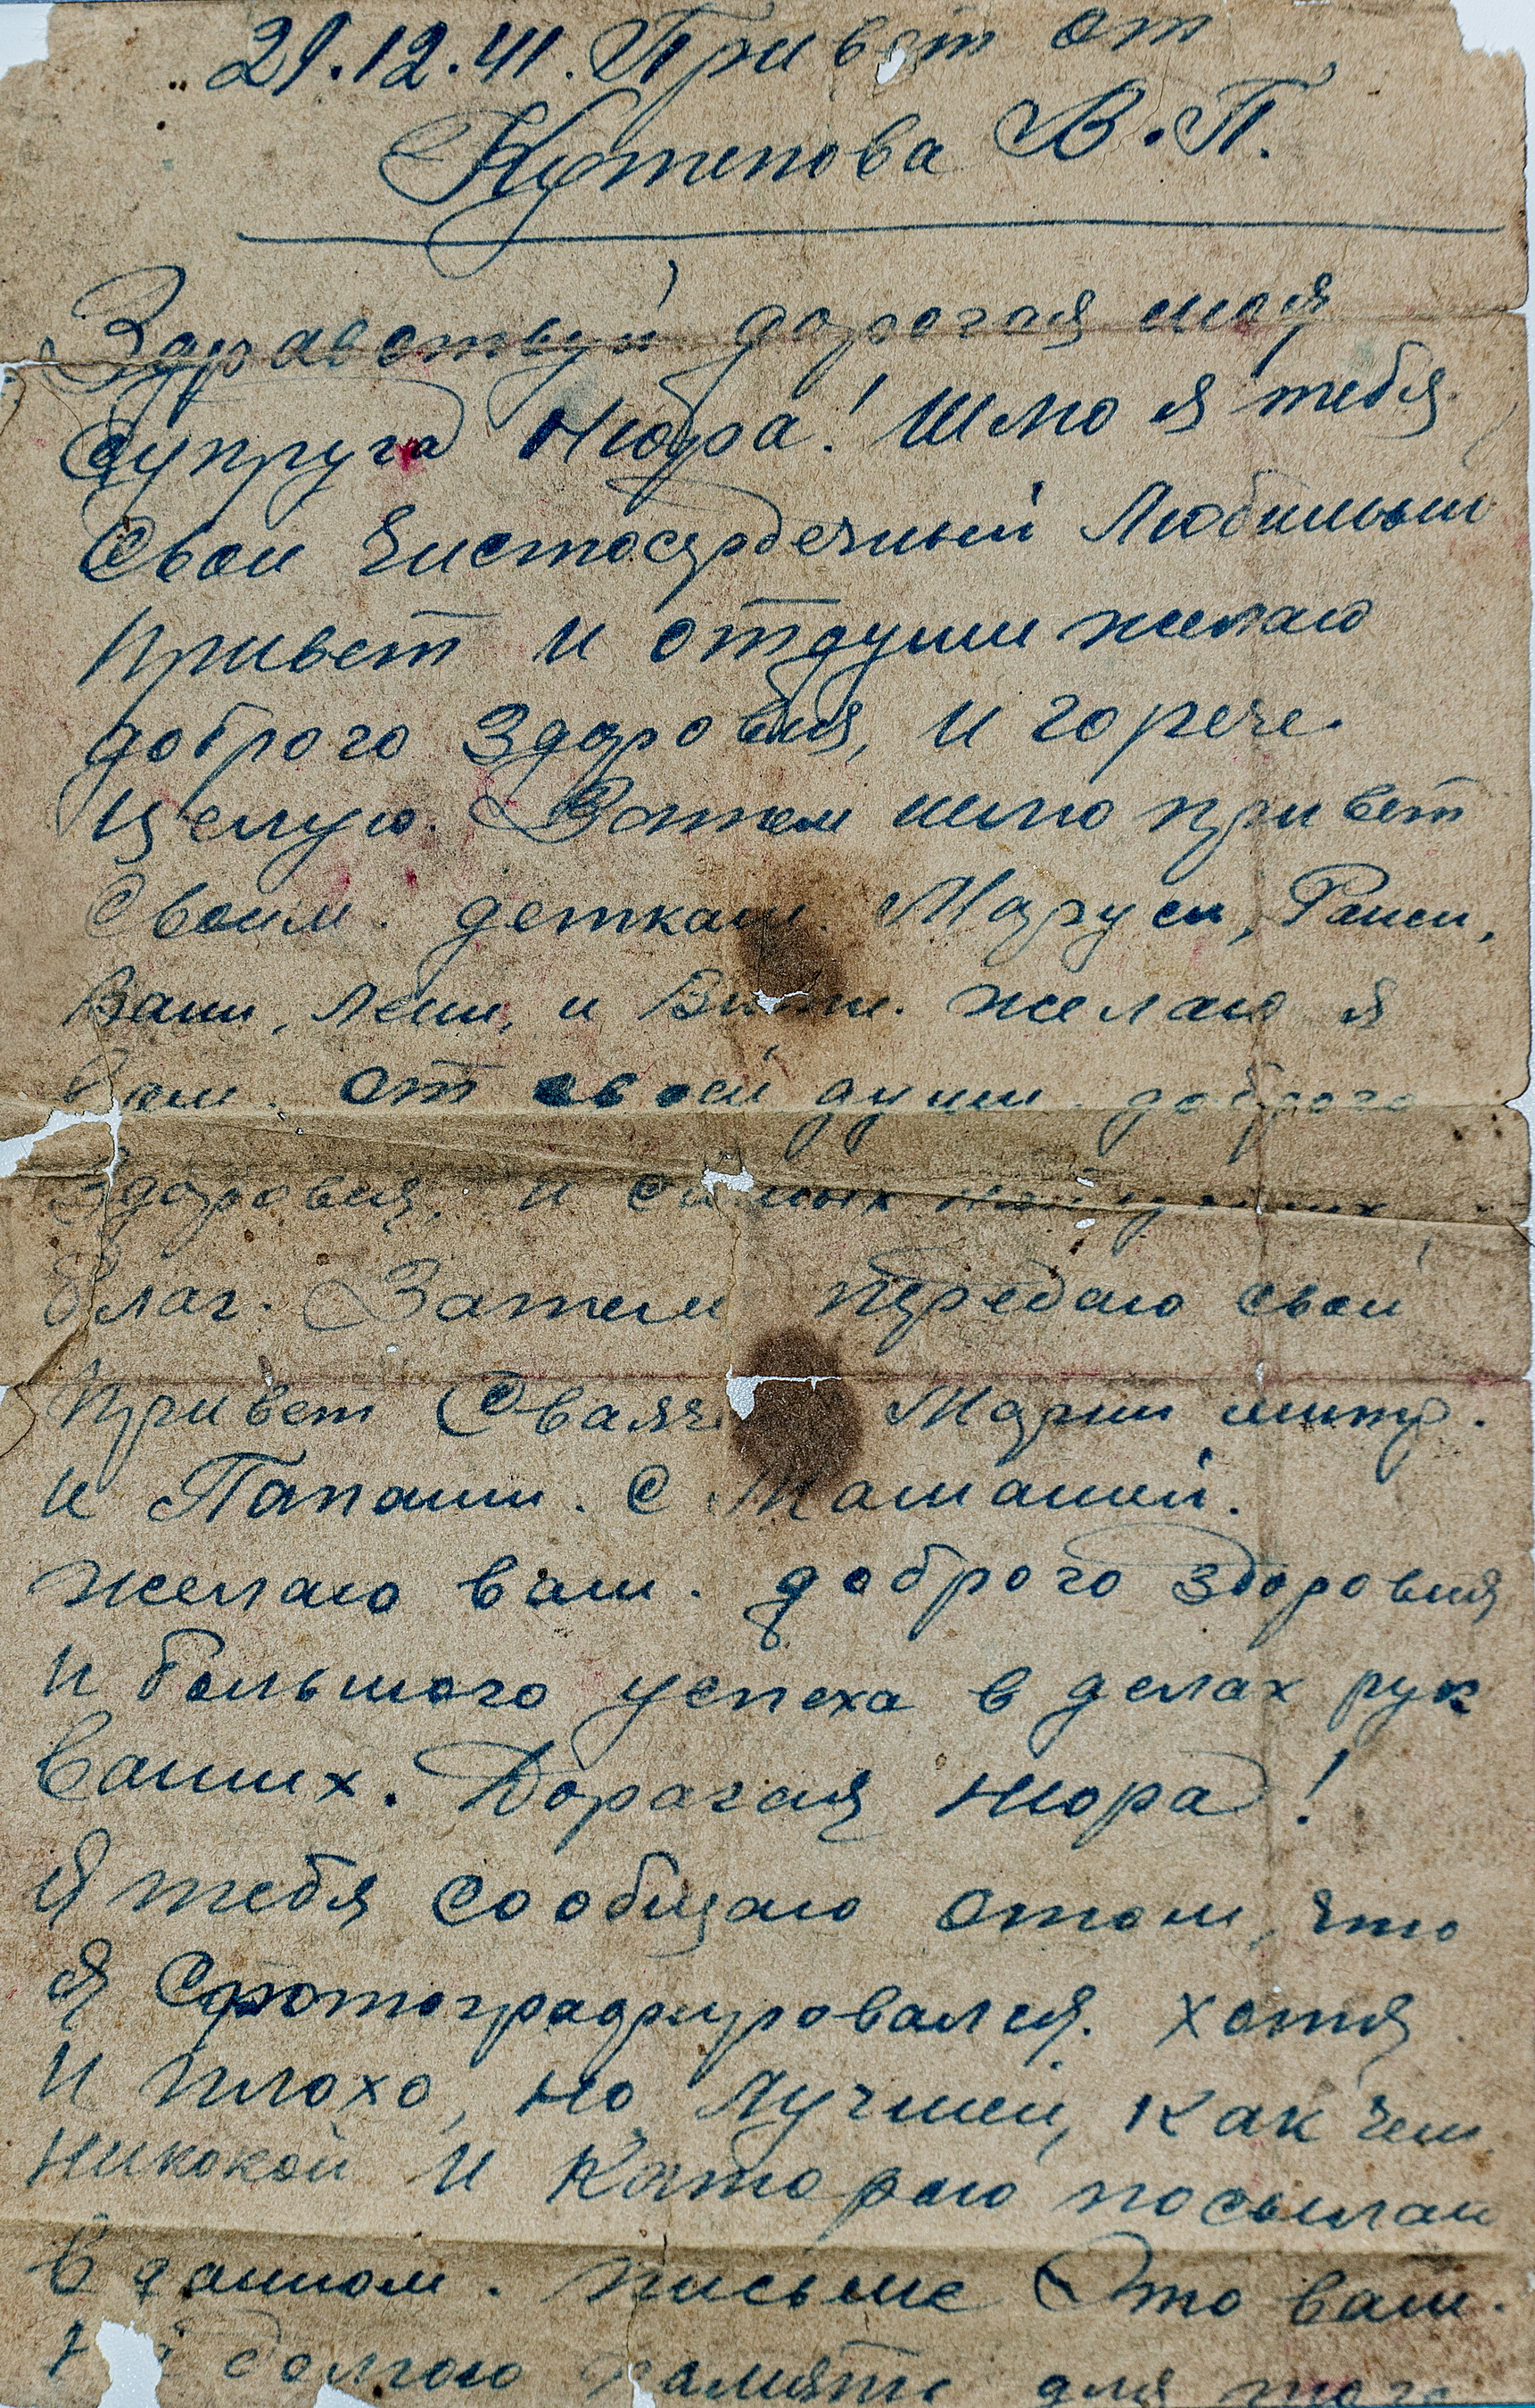 29.12.41. Привет от
Кутепова В.П.
Здравствуй дорогая моя
супруга Нюра! Шлю я тебя
свой чистосердечный любимый
привет и отдуши желаю
доброго здоровия, и горече
целую. Затем шлю привет
своим. деткам. Маруси, Раиси,
Вани, Лени, и Вити. желаю я
вам. от своей души. доброго
здоровия, и самых наилучших
благ. Затем передаю свой
привет Марии митр.
и Папаши. с Мамашей.
желаю вам. доброго здоровия
и большого успеха в делах рук
ваших. Дорагая Нюра!
Я тебя сообщаю отом, что
я сфотографировался. хотя
и плохо, но лучшей, как чем
никокой и катораю посылаю
в данном. письме Это вам.
долгою памяти для того